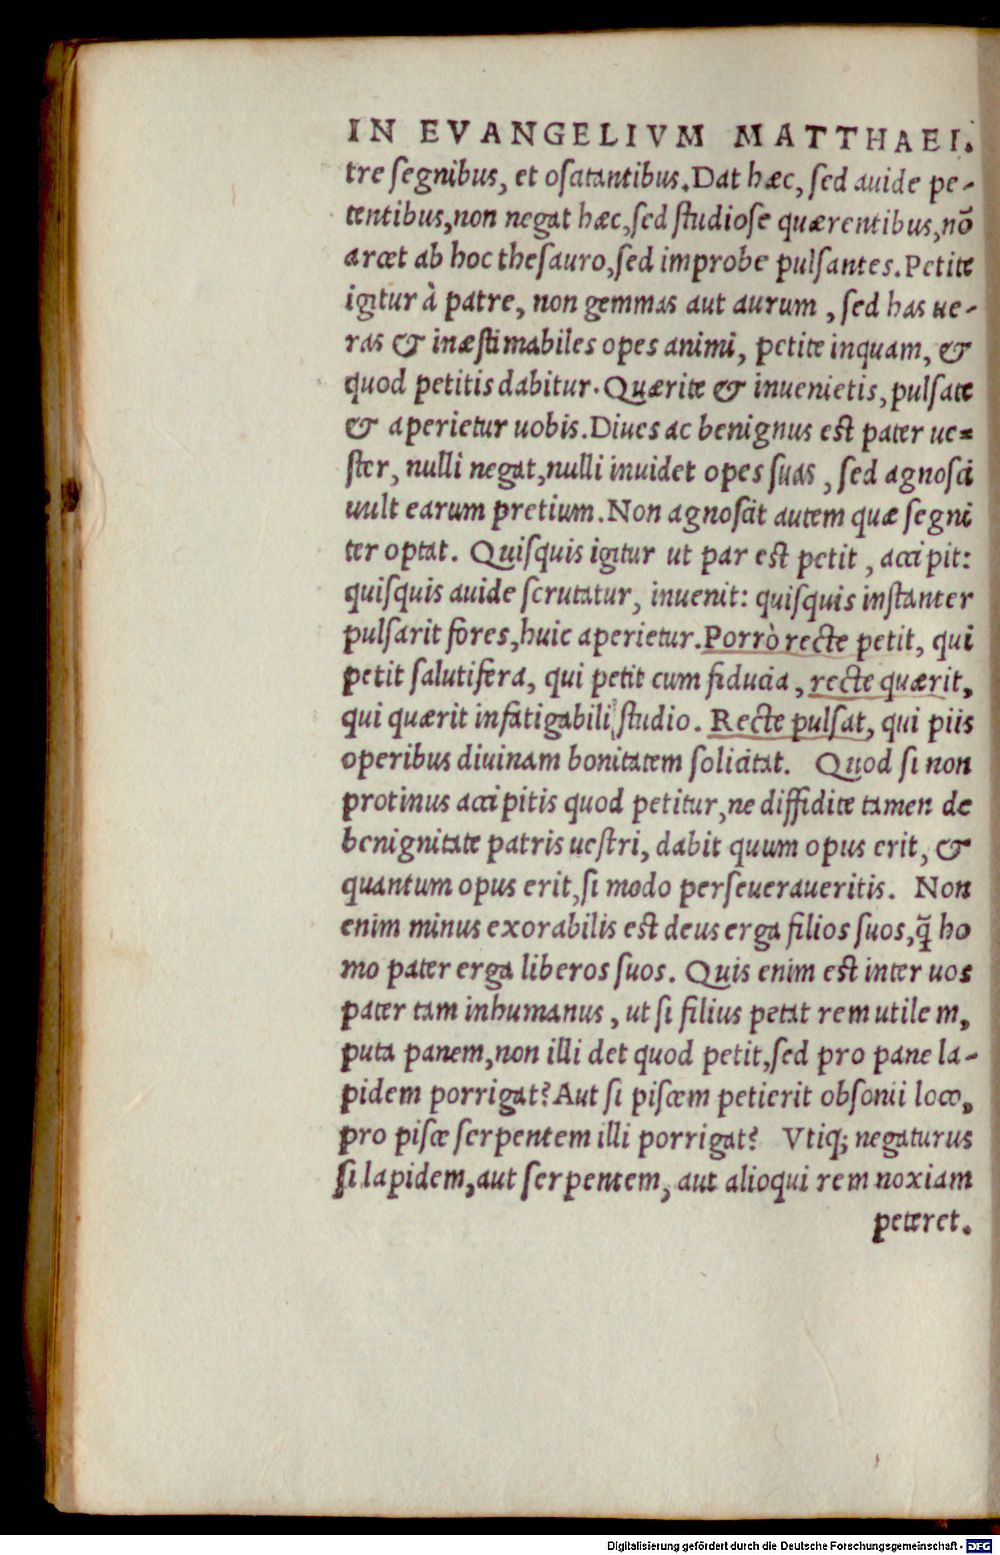 IN EVANGELIVM MATTHAEI.
tre ſegnibus, et oſatantibus. Dat hæc, ſed auide pe-
tentibus, non negat hæc, ſed ſtudioſe quærentibus, nō
arcet ab hoc theſauro, ſed improbe pulſantes. Petite
igitur à patre, non gemmas aut aurum, ſed has ue-
ras & inæſtimabiles opes animi, petite inquam, &
quod petitis dabitur. Quærite & inuenietis, pulſate
& aperietur uobis. Diues ac benignus eſt pater ue-
ſter, nulli negat, nulli inuidet opes ſuas, ſed agnoſci
uult earum pretium. Non agnoſcit autem quæ ſegni
ter optat. Quiſquis igitur ut par eſt petit, accipit:
quiſquis auide ſcrutatur, inuenit: quiſquis inſtanter
pulſarit fores, huic aperietur. Porrò recte petit, qui
petit ſalutifera, qui petit cum fiducia, recte quærit,
qui quærit infatigabili ſtudio. Recte pulſat, qui piis
operibus diuinam bonitatem ſolicitat. Quod ſi non
protinus accipitis quod petitur, ne diffidite tamen de
benignitate patris ueſtri, dabit quum opus erit, &
quantum opus erit, ſi modo perſeueraueritis. Non
enim minus exorabilis eſt deus erga filios ſuos, q̄ ho
mo pater erga liberos ſuos. Quis enim eſt inter uos
pater tam inhumanus, ut ſi filius petat rem utilem,
puta panem, non illi det quod petit, ſed pro pane la-
pidem porrigat? Aut ſi piſcem petierit obſonii loco,
pro piſce ſerpentem illi porrigat? Vtiq; negaturus
ſi lapidem, aut ſerpentem, aut alioqui rem noxiam
peteret.
Digitalisierung gefördert durch die Deutsche Forschungsgemeinschaft - DFG